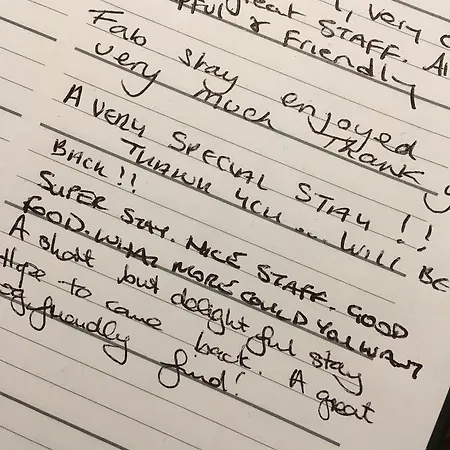 great STAFF. Al
& Friendly
Fab stay enjoyed
very much Thank y
A VERY SPECIAL STAY !!
THANK YOU ... WILL BE
BACK !!
SUPER STAY. NICE STAFF. GOOD
FOOD. WHAT MORE COULD YOU WANT
A short but delightful stay
Hope to come back. A great
friendly find!